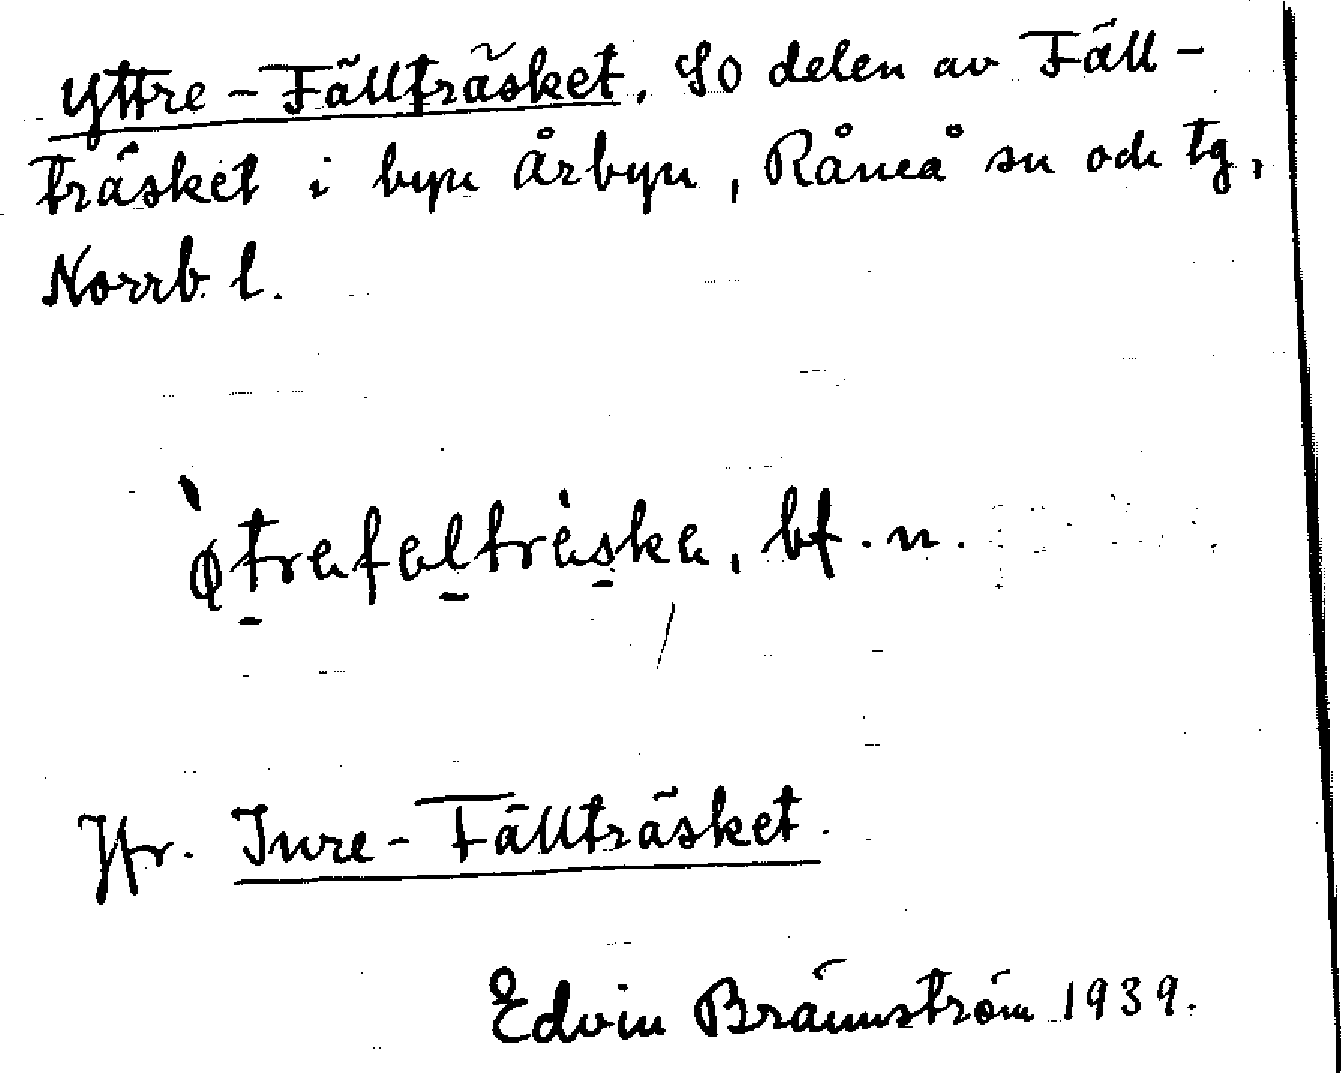 Yttre-Fällträsket, So delen av Fäll-
träsket i byn Årbyn, Råneå sn och tg,
Norrb l.
`øtrefelträske, bf. n.
Jfr. Inre-Fällträsket.
Edvin Brännström 1939.